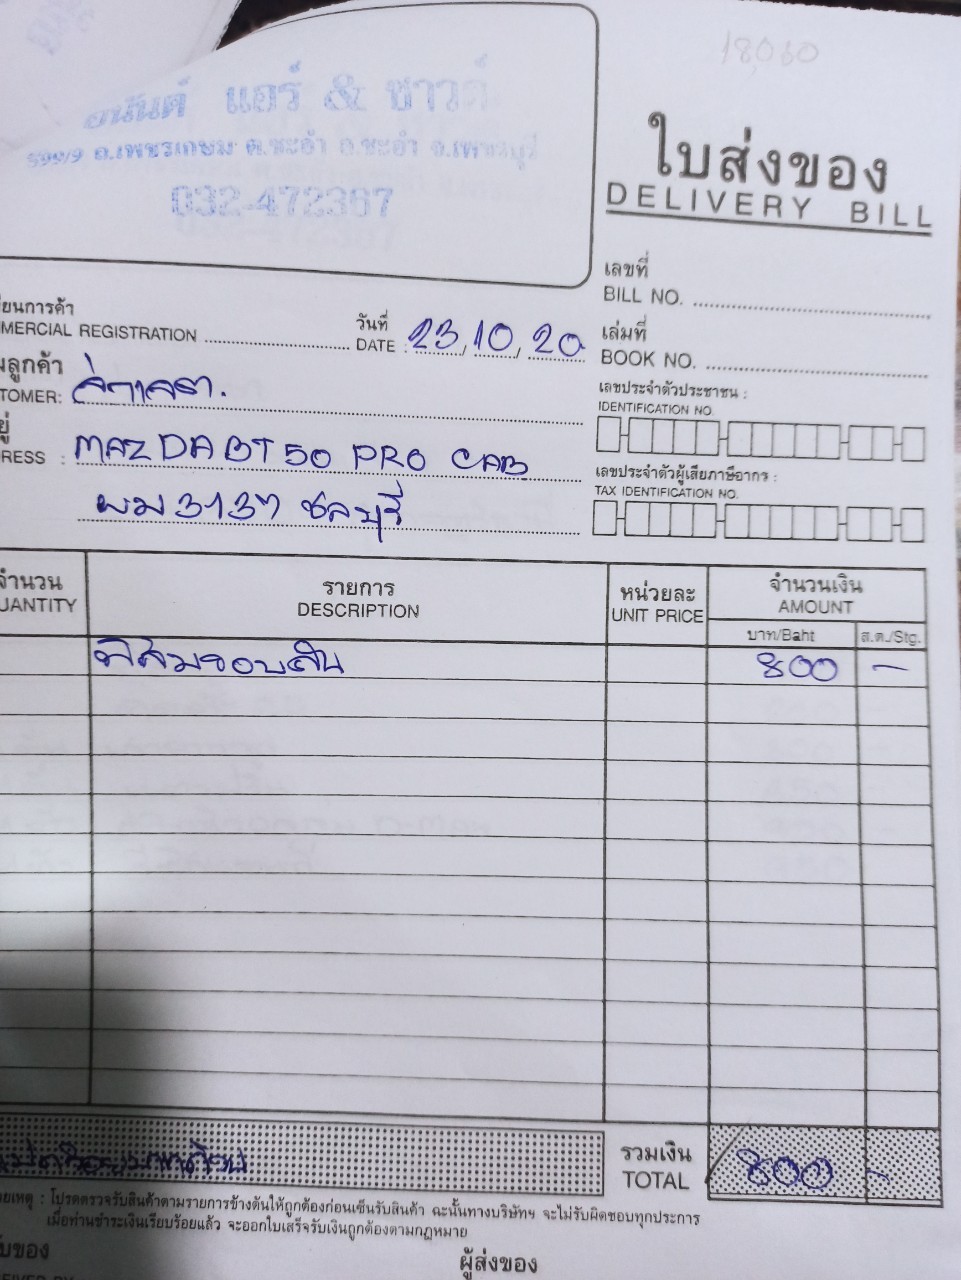 18,030
อนันต์ แอร์ & ซาวด์
599/9 ถ.เพชรเกษม ต.ชะอำ อ.ชะอำ จ.เพชรบุรี
032-472367
ใบส่งของ
DELIVERY BILL
เลขที่
BILL NO.
ยนการค้า
MERCIAL REGISTRATION
วันที่
DATE : 23, 10, 20
เล่มที่
BOOK NO.
ลูกค้า
TOMER:
เลขประจำตัวประชาชน :
IDENTIFICATION NO.
ยู่
RESS : MAZDA BT 50 PRO CAB
ผม 3137 ชลบุรี
เลขประจำตัวผู้เสียภาษีอากร :
TAX IDENTIFICATION NO.
จำนวน
UANTITY
รายการ
DESCRIPTION
หน่วยละ
UNIT PRICE
จำนวนเงิน
AMOUNT
บาท/Baht
ส.ต./Stg.
800 -
รวมเงิน
TOTAL
800 -
ยเหตุ : โปรดตรวจรับสินค้าตามรายการข้างต้นให้ถูกต้องก่อนเซ็นรับสินค้า ฉะนั้นทางบริษัทฯ จะไม่รับผิดชอบทุกประการ
เมื่อท่านชำระเงินเรียบร้อยแล้ว จะออกใบเสร็จรับเงินถูกต้องตามกฎหมาย
บของ
ผู้ส่งของ